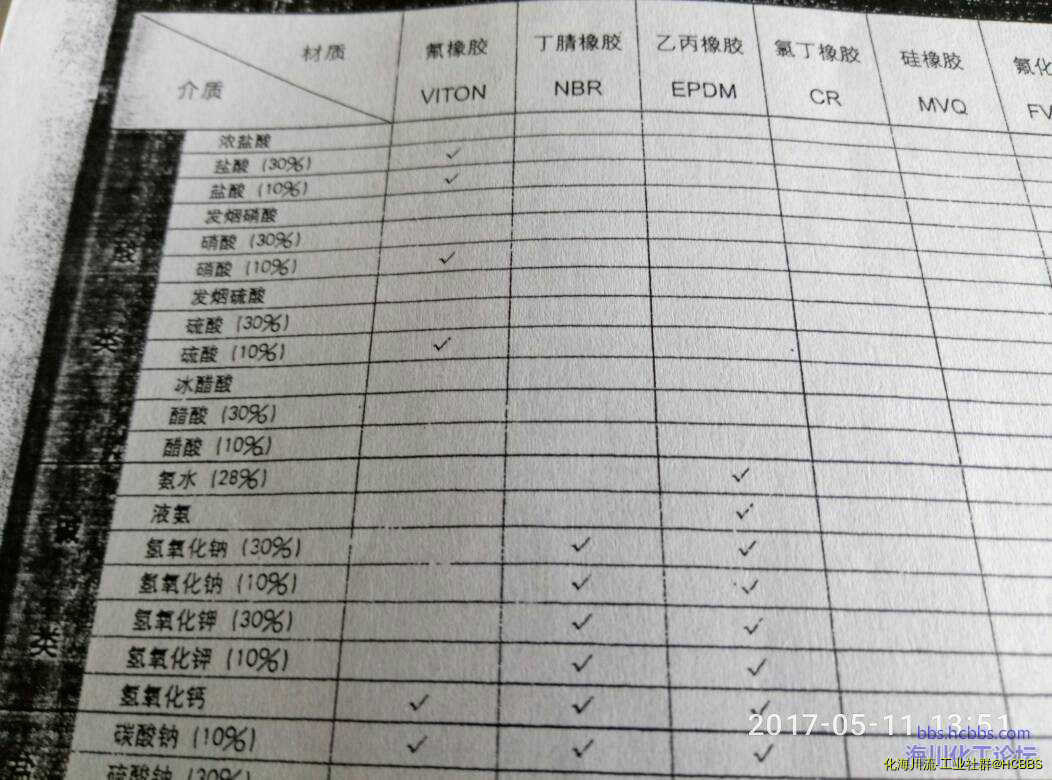 材质 氟橡胶 丁腈橡胶 乙丙橡胶 氯丁橡胶 硅橡胶 氟化
介质 VITON NBR EPDM CR MVQ FV
酸类
浓盐酸
盐酸 (30%) ✓
盐酸 (10%) ✓
发烟硝酸
硝酸 (30%)
硝酸 (10%) ✓
发烟硫酸
硫酸 (30%)
硫酸 (10%) ✓
冰醋酸
醋酸 (30%)
醋酸 (10%)
碱类
氨水 (28%) ✓
液氨 ✓
氢氧化钠 (30%) ✓ ✓
氢氧化钠 (10%) ✓ ✓
氢氧化钾 (30%) ✓ ✓
氢氧化钾 (10%) ✓ ✓
氢氧化钙 ✓ ✓ ✓
碳酸钠 (10%) ✓ ✓ ✓
硫酸钠 (30%)
2017-05-11 13:51
bbs.hcbbs.com
海川化工论坛
化海川流·工业社群@HCBBS